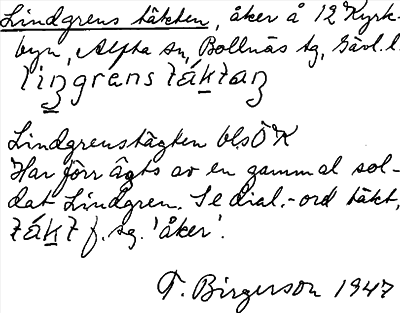 Lindgrens täkten, åker å 12 Kyrk-
byn, Alfta sn, Bollnäs tg, Gävl. l.
Lindgrenstägten bls ÖK
Har förr ägts av en gammal sol-
dat Lindgren. Se dial.-ord täkt,
f. sg. 'åker'.
T. Birgerson 1947